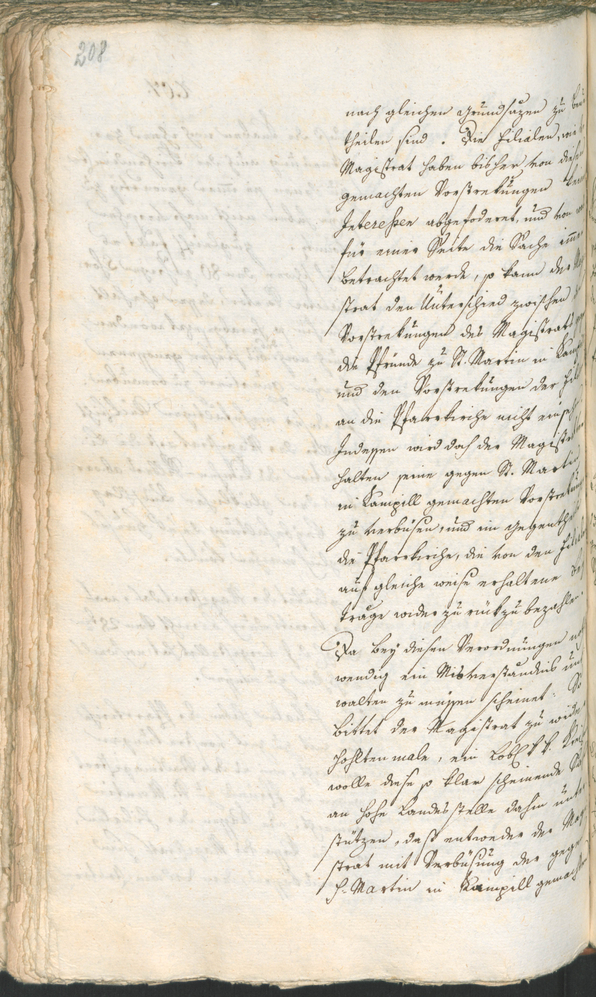 208
nach gleichen Grundsäzen zu beur
theilen sind. Die Filialen, wie
Magistrat haben bisher von diesen
gemachten Vorstrekungen keine
Interessen abgefoderet, und von
für einer Seite die Sache immer
betrachtet werde, so kann der Magi
strat den Unterschied zwischen
Vorstrekungen des Magistrats
die Pfründe zu St. Martin in Kampill
und den Vorstrekungen der Fili
an die Pfarrkirche nicht einsehen
Indessen wird doch der Magistrat
halten seine gegen St. Martin
in Kampill gemachten Vorstrekungen
zu verbüsen, und im Gegentheil
die Pfarrkirche, die von den Filialen
auf gleiche weise erhaltene Be
träge wider zurük zu bezahlen.
Da bey diesen Verordnungen noth
wendig ein Misverständnis unter
walten zu müssen scheinet: So
bittet der Magistrat zu wieder
hohlten male, ein Löbl. k. k. Kreis
wolle diese so klar scheinende
an hohe Landesstelle dahin unter
stützen, daß entweder der Magi
strat mit Verbüsung der gegen
S. Martin in Kampill gemachten